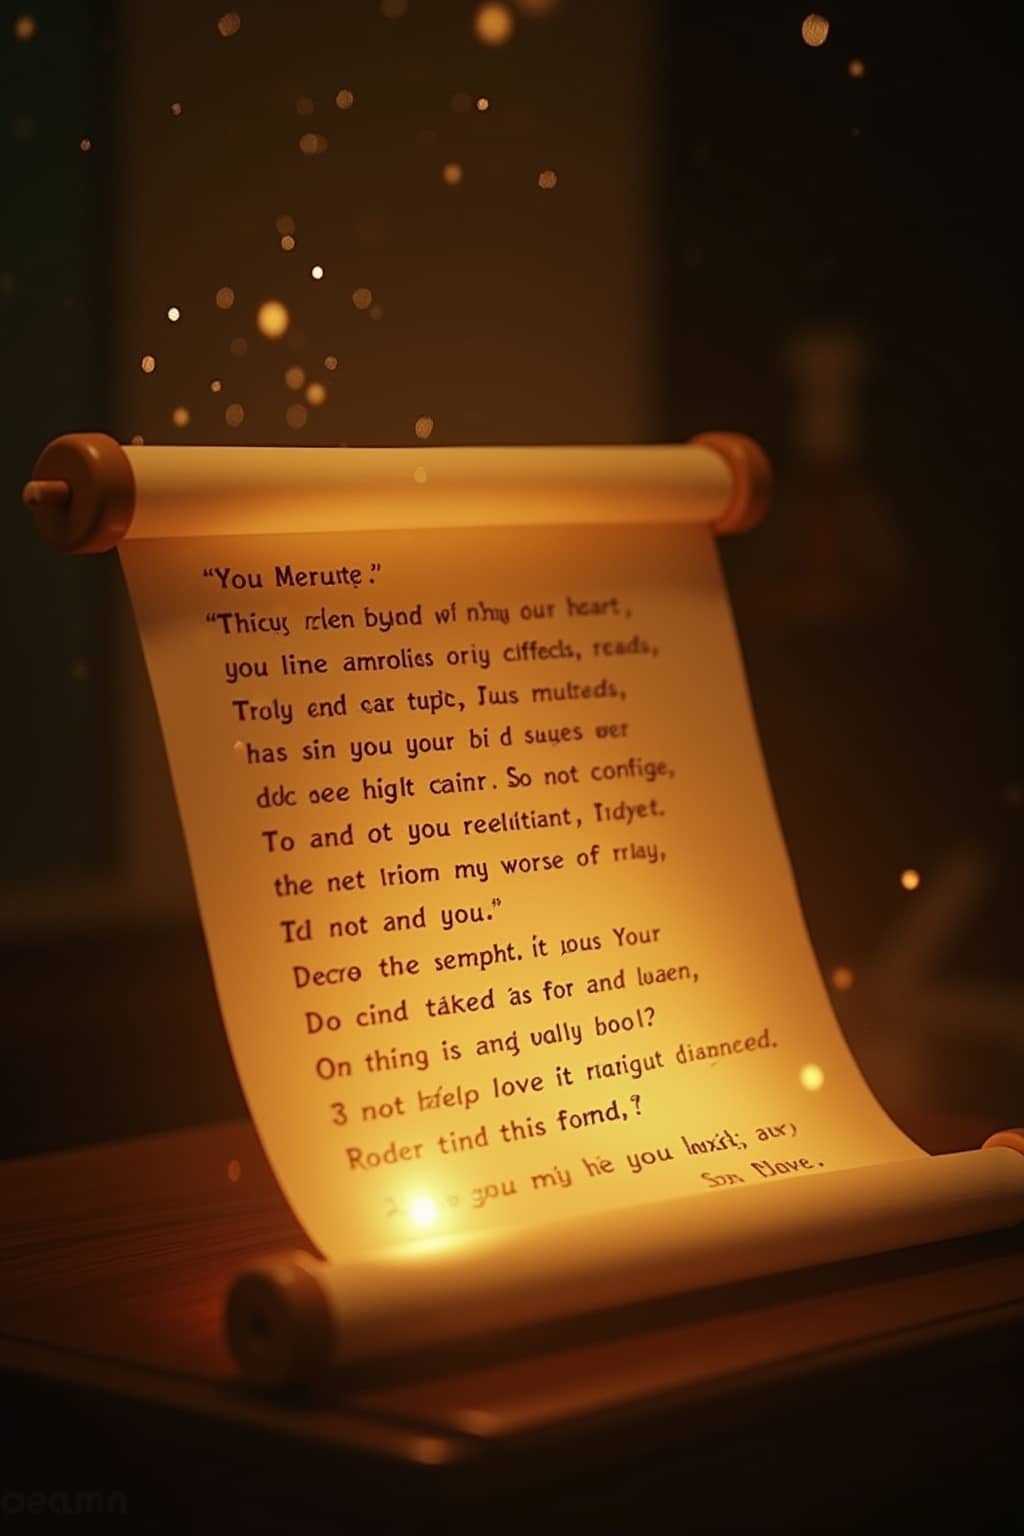 "You Merute."
"Thicus rclen byod wf nhy our heart,
you line amrolies oriy ciffecls, reads,
Troly end car tupc, Jus multeds,
has sin you your bi d suyes wer
ddc oee higlt cainr. So not confige,
To and ot you reelitiant, Tidyet.
the net Iriom my worse of rrlay,
Td not and you."
Decre the sempht. it yous Your
Do cind táked as for and luaen,
On thing is ang vally bool?
3 not love it rıarigut diannced.
Roder tind this fomd,?
you miy he you
Nave.